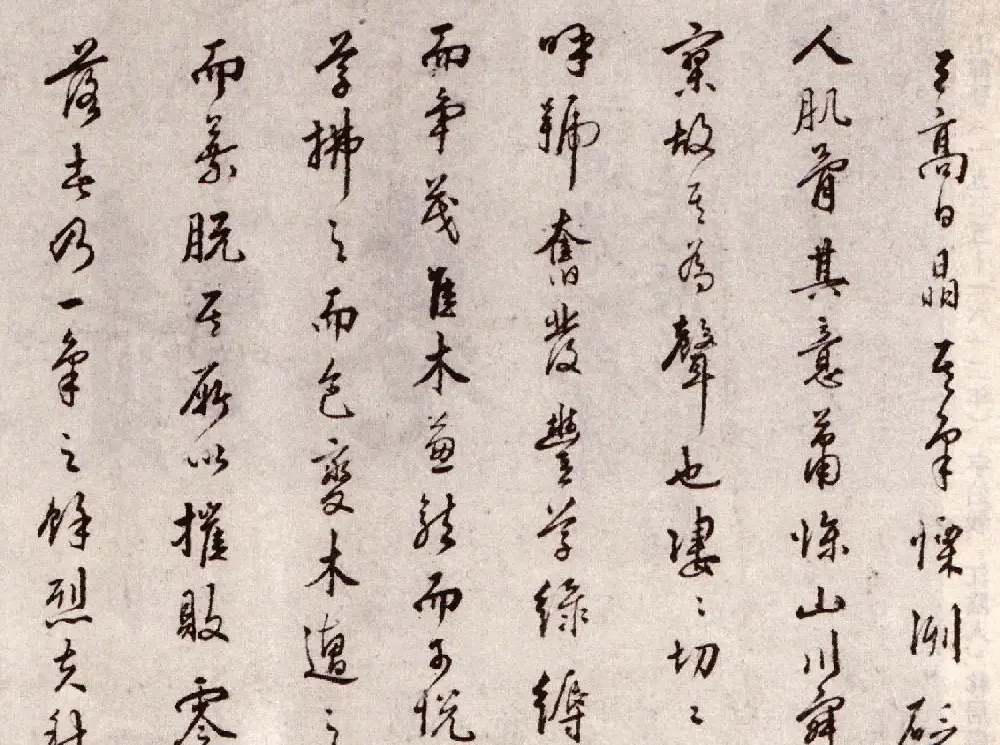 天高日晶其氣慄冽砭
人肌骨其意蕭條山川寂
寥故其為聲也淒〻切〻
呼號奮發豐草綠縟
而爭茂佳木葱蘢而可悅
草拂之而色變木遭之
而葉脫其所以摧敗零
落者乃一氣之餘烈夫秋